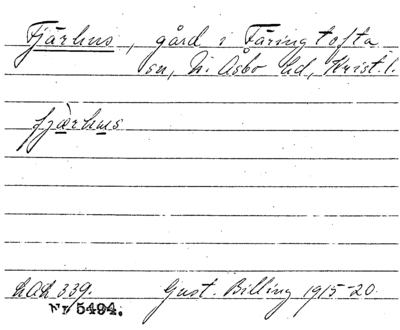 Fjärhus, gård i Färingtofta
sn, N. Åsbo hd, Krist. l.
fjàrhus
339.
Gust. Billing 1915-20.
Nr 5494.